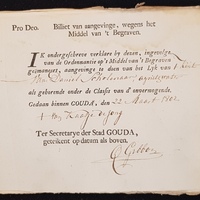 Pro Deo. Billiet van aangevinge, wegens het
Middel van 't Begraven.
IK ondergeschreve verklare by desen, ingevolge,
van de Ordonnantie op 't Middel van 't Begraven
geëmaneert, aangevinge te doen van het Lyk van 't
van Daniel
als gehorende onder de Classis van d'onvermogende.
Gedaan binnen GOUDA, den 22 Maart
Ter Secretarye der Stad GOUDA,
geteikent op datum als boven.